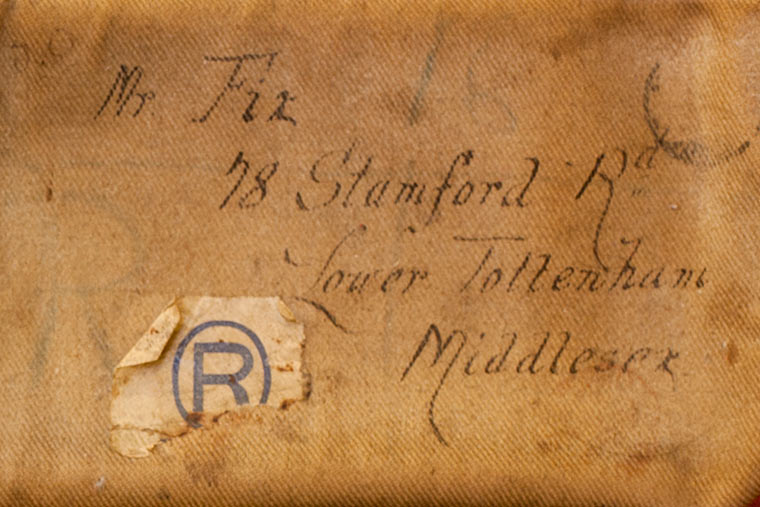 Mr Fix
78 Stamford Rd
Lower Tottenham
Middlesex
R